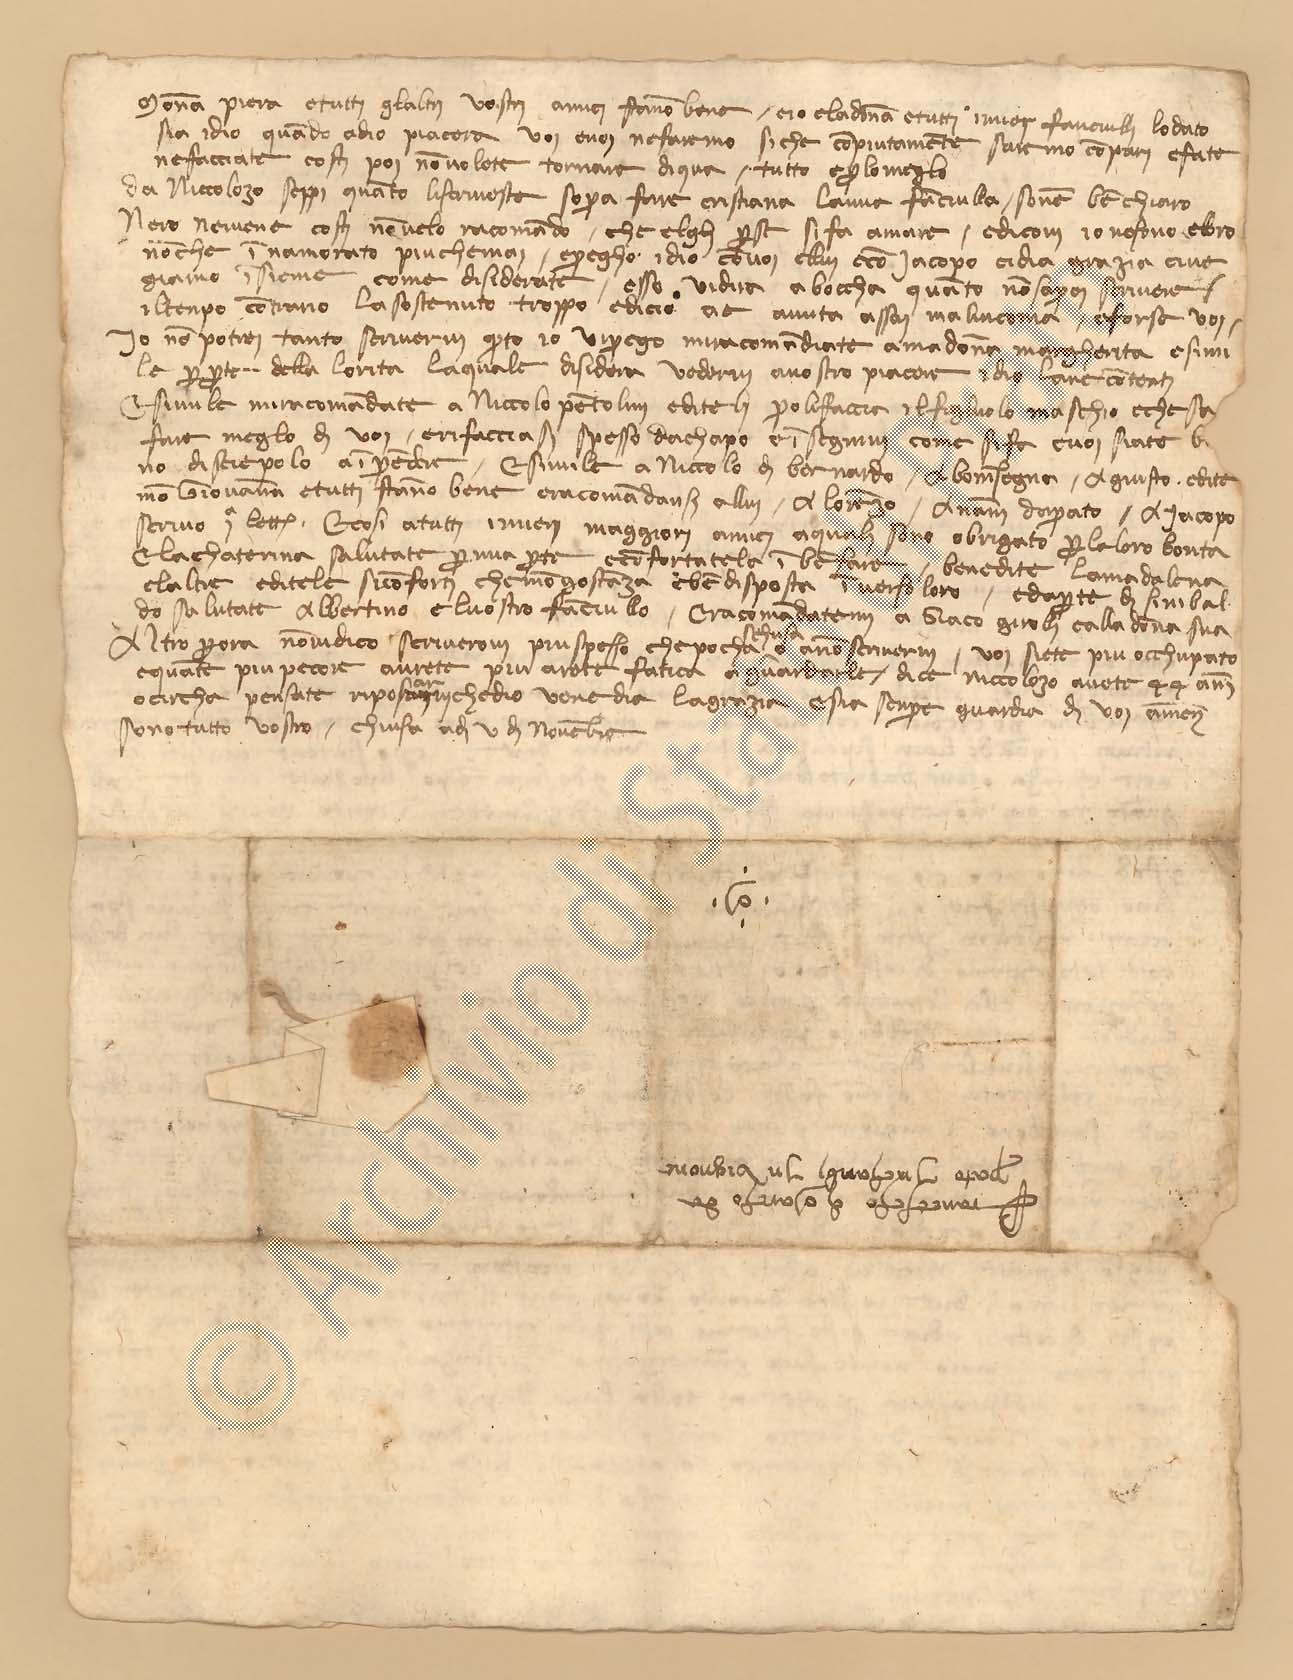 Monna piera e tutti gl altri vostri amici stanno bene / e io e la donna e tutti i miei fanciulli lodato
sia idio quando a dio piacera voi e noi ne faremo si che compiutamente saremo compari e fate
ne facciate costi poi non volete tornare di qua / tutto e per lo meglo
da Niccolozo seppi quanto li scriveste sopra fare cristiana la mia fanciulla / sonne ben chiaro
Nero ne viene costi non ve lo racomando / che elgli per se si fa amare / e dicovi io ne sono ebro
non che innamorato piu che mai / e priegho idio con voi e lui e con Jacopo ci dia grazia ci veg
giamo insieme come disiderate / esso vi dira a boccha quanto non saprei scrivere /
il tenpo contrario l a sostenuto troppo e di cio a e avuta assai malinconia / e forse voi /
Io non potrei tanto scrivervi quanto io vi priego mi racomandiate a madonna margherita e simi
le per parte della lorita la quale disidera vedervi a vostro piacere idio l ave contenti
E simile mi racomandate a Niccolo pentolini e diteli per lo li faccia il figluolo maschio e che sa
fare meglo di voi / e rifacciasi spesso da chapo e insegnivi come si fa e voi siate b
no disciepolo a inprendere / E simile a Niccolo di bernardo / A boninsegna / A guisto . e dite
mona Giovanna e tutti stanno bene e racomandansi a llui / A lorenzo / A nanni da prato / A Jacopo
scrivo 1a lettera . E cosi a tutti i miei maggiori amici a quali sono obrigato per la loro bonta
E la chaterina salutate per mia parte e confortatela in ben fare / benedite la madalena
e l altre e ditele si conforti che mona gostanza e ben disposta inverso loro / e da parte di sinibal
do salutate Albertino e l vostro fanciullo / E racomandatemi a biaco giroli e alla donna sua
Altro per ora non vi dico scriverovi piu spesso che pocha schusa o a non scrivervi / voi siete piu occhupato
e quante piu pecore avrete piu arete fatica a guardarle / dice niccolozo avete 44 anni
o circha pensate riposarvi che dio ve ne dia la grazia e sia senpre guardia di voi amen
sono tutto vostro / chiusa a di v di Novenbre
Francescho di Marcho da
prato